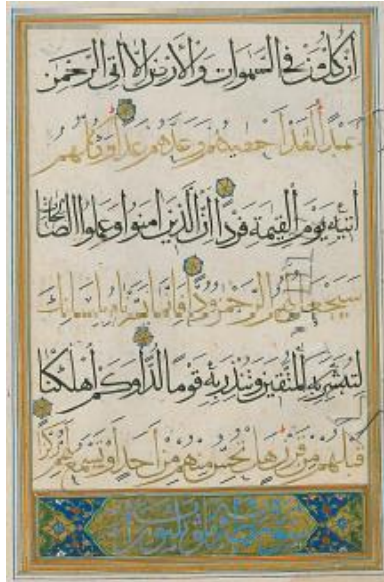 ان كل من في السموات والارض الا اتى الرحمن
عبدا لقد احصيهم وعدهم عدا وكلهم
اتيه يوم القيمة فردا ان الذين امنوا وعملوا الصالحات
سيجعل لهم الرحمن ودا فانما يسرناه بلسانك
لتبشر به المتقين وتنذر به قوما لدا وكم اهلكنا
قبلهم من قرن هل تحس منهم من احد او تسمع لهم ركزا
سورة